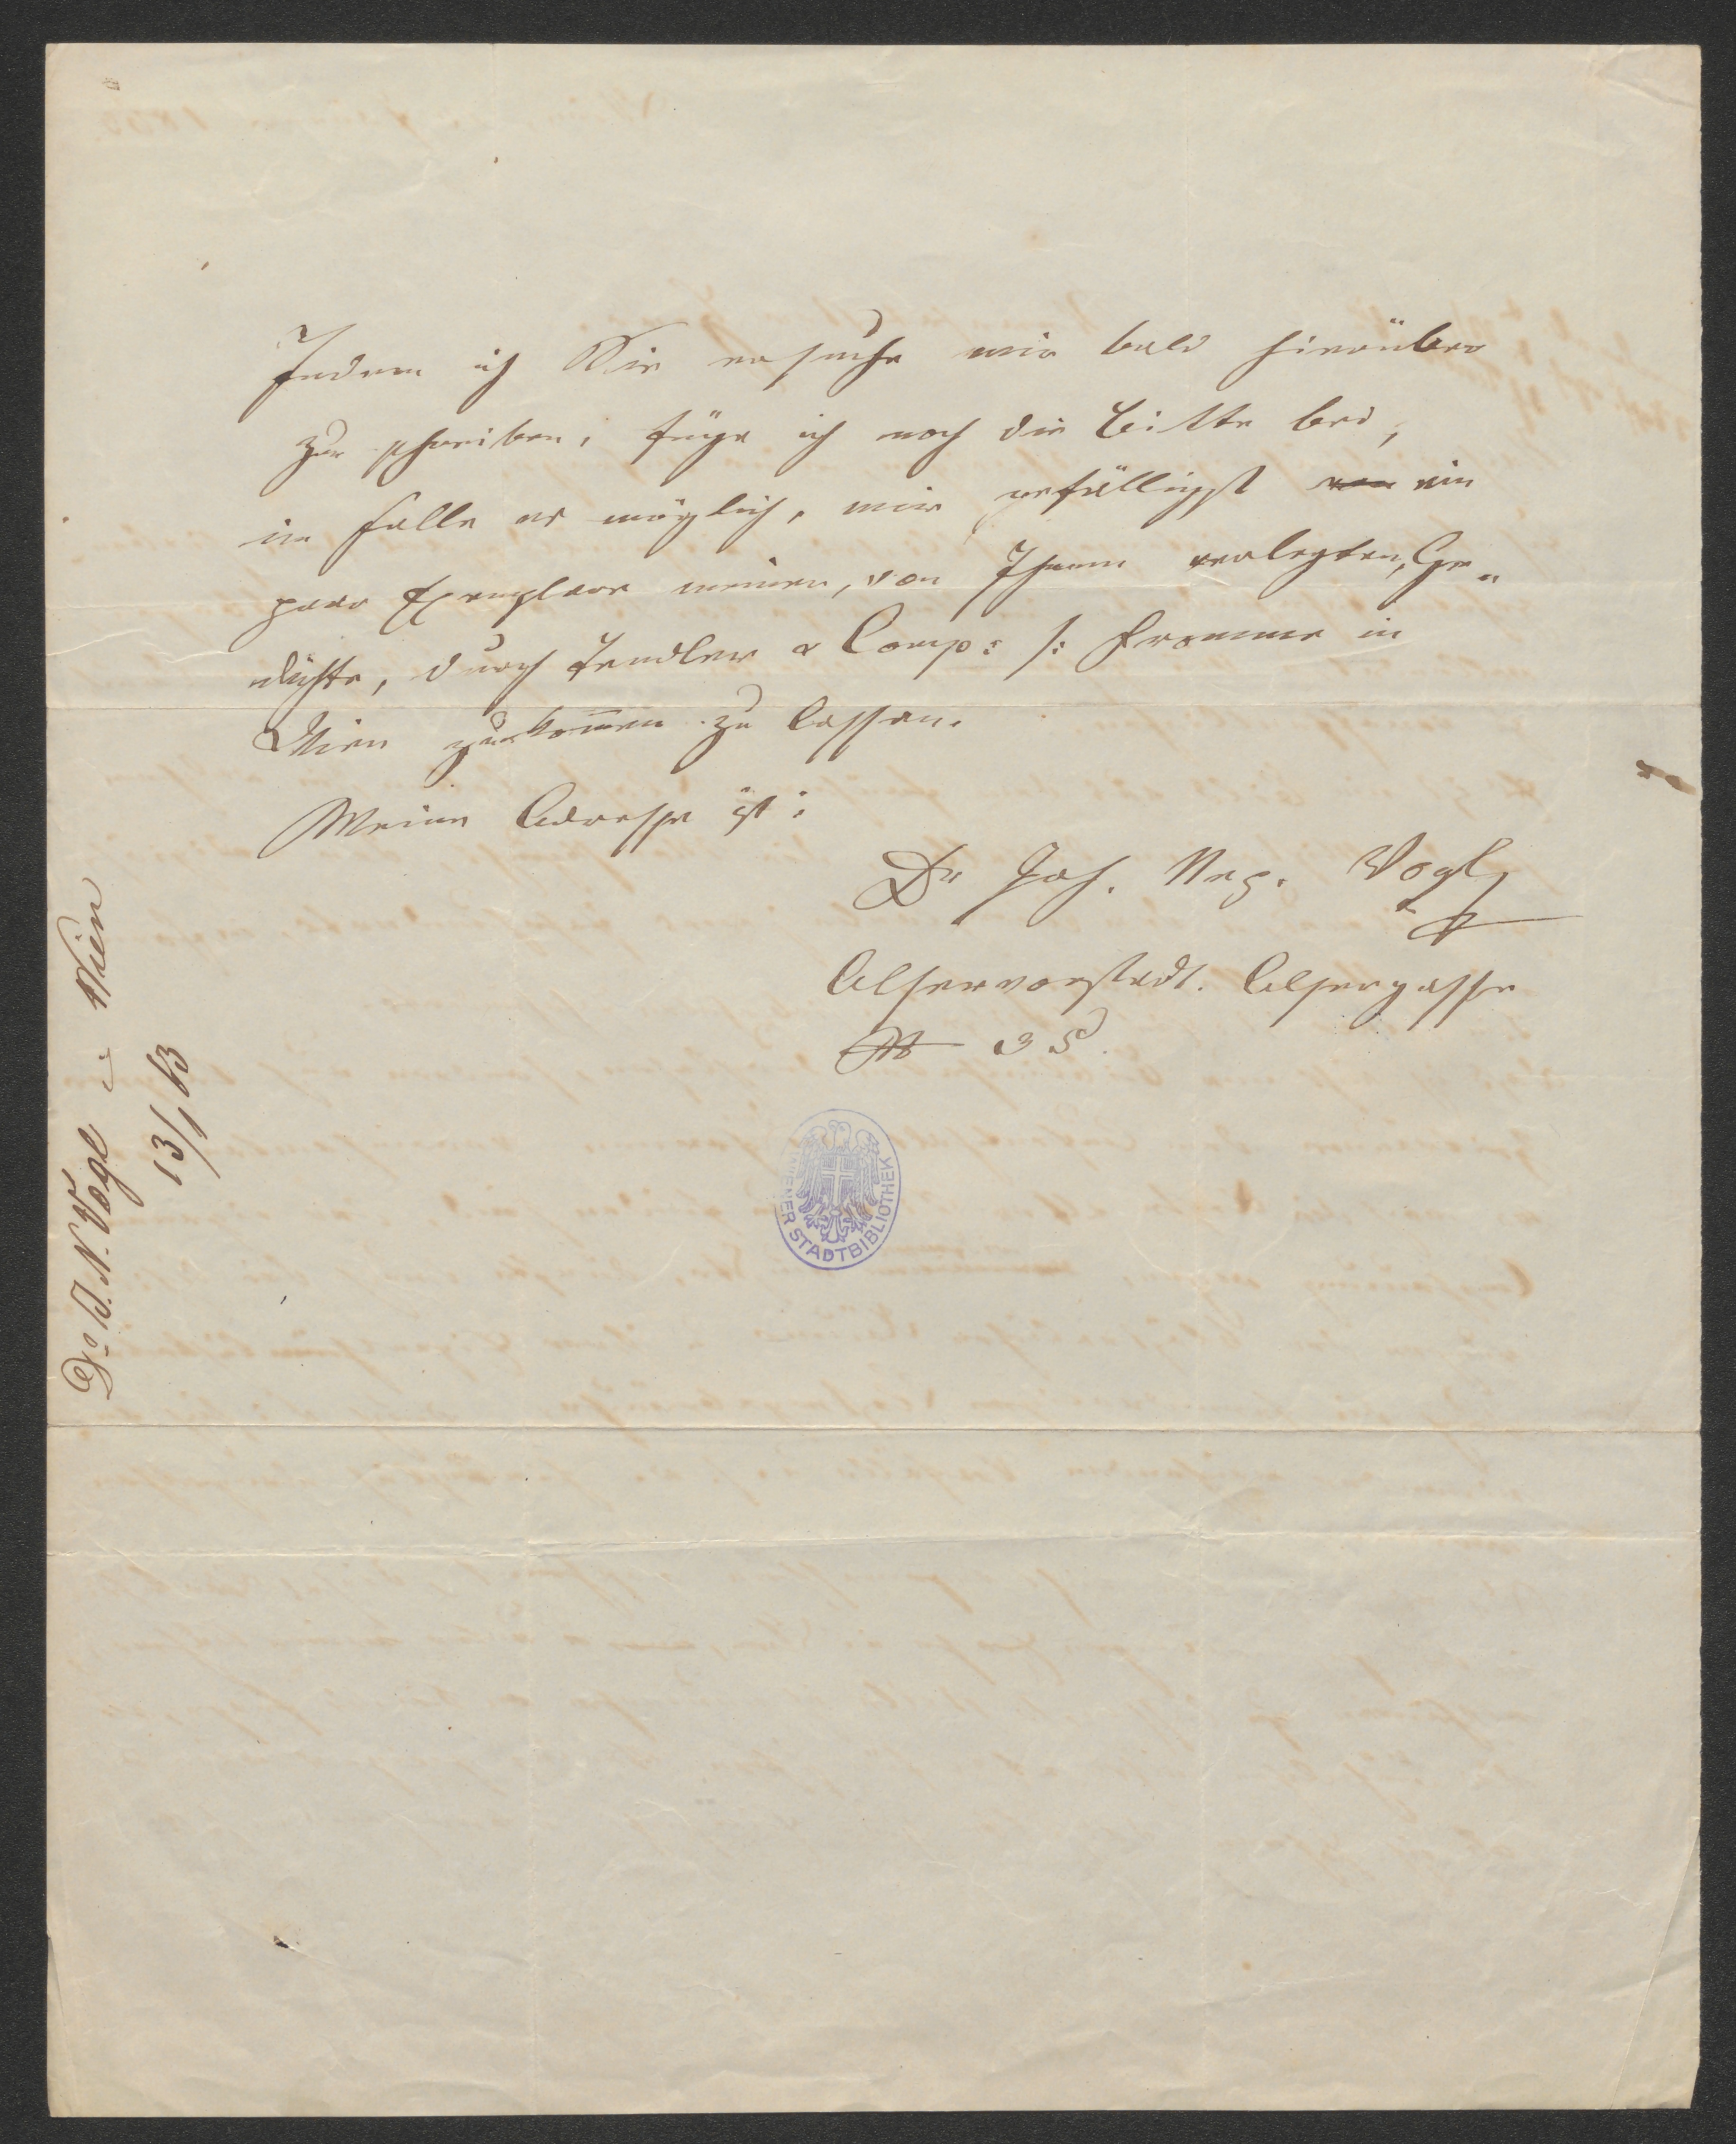 Indem ich Sie ersuche mir bald hierüber
zu schreiben, füge ich noch die Bitte bei,
im Falle es möglich, mir gefälligst ein
paar Exemplare meiner, von Ihnen verlegten, Ge„
dichte, durch Tendler & Comp: /: Fromme in
Wien zukom̅en zu lassen.
Meine Adresse ist:
Dr Joh. Nep. Vogl
Alservorstadt. Alsergasse
N 35.
Dr J. N. Vogl in Wien
13/1 63
WIENER STADTBIBLIOTHEK